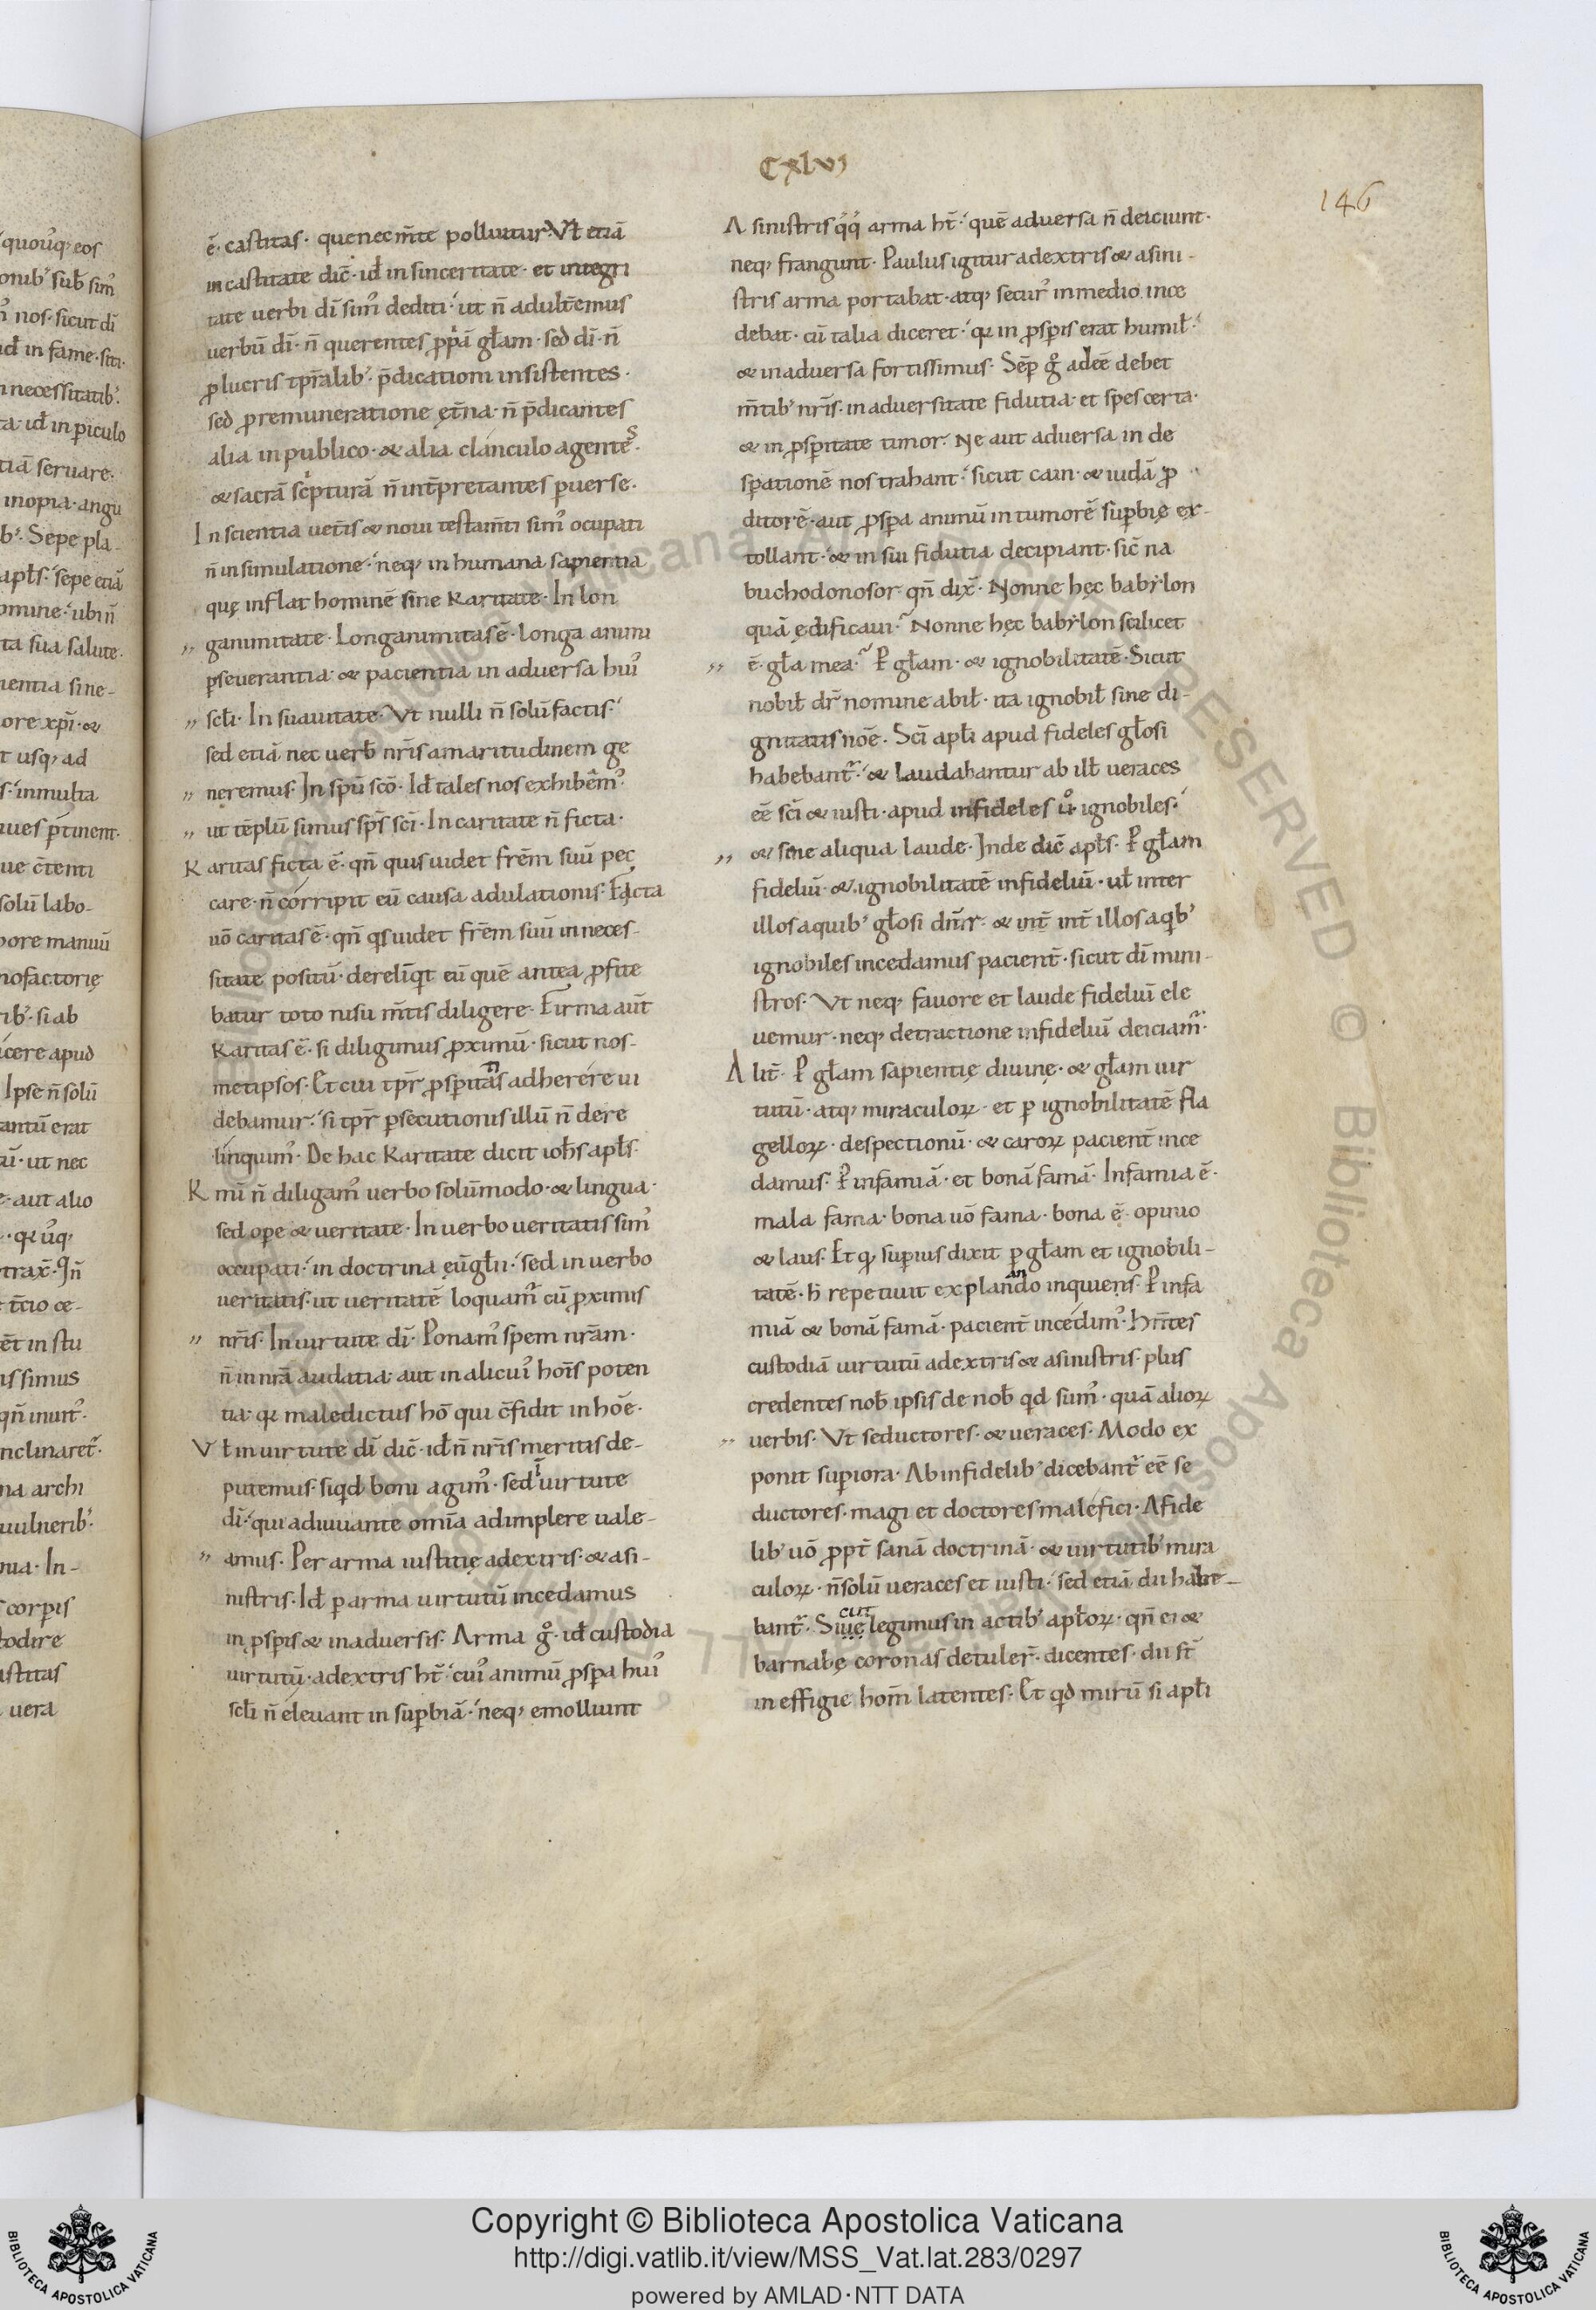 CXLVI
146
ē· castitas· que nec m̄te polluitur· Vt̄ etiā
in castitate dic̄· id̄ in sinceritate· et integri
tate uerbi dī sim᷒ dediti· ut n̄ adult̄emus
uerbū dī· n̄ querentes ꝓp̄ā gl̄am· sed dī· n̄
ꝓ lucris tp̄ralib᷒· p̄dicationi insistentes·
sed ꝓ remuneratione ęt̄na· n̄ p̄dicantes
alia in publico· & alia clanculo agentes·
& sacrā sc̄pturā n̄ int̄pretantes ꝑuerse·
In scientia uet̄is & noui testam̄ti sim᷒ ocupati
n̄ in simulatione· neq; in humana sapientia
quę inflat hominē sine karitate· In lon
„ ganimitate· Longanimitas ē· longa animi
ꝑseuerantia· & pacientia in aduersa hui᷒
„ scl̄i· In suauitate· Vt nulli n̄ solū factis·
sed etiā nec uerb̄ nr̄is amaritudinem ge
„ neremus· In sp̄u sc̄o· Id̄ tales nos exhibēm᷒·
„ ut tēplū simus sp̄s sc̄i· In caritate n̄ ficta·
Karitas ficta ē· qn̄ quis uidet fr̄em suū pec
care· n̄ corripit eū causa adulationis· Facta
uō caritas ē· qn̄ qs uidet fr̄em suū in neces-
sitate positū· derelīqt eū quē antea ꝓfite
batur toto nisu m̄tis diligere· Firma aūt
karitas ē· si diligimus ꝓximū· sicut nos-
metipsos· Et cui tp̄r ꝓsꝑitatis adherere ui
debamur· si tp̄r ꝑsecutionis illū n̄ dere
linquim᷒· De hac karitate dicit ioh̄s apl̄s·
K mī n̄ diligam᷒ uerbo solūmodo· & lingua·
sed oꝑe & ueritate· In uerbo ueritatis sim᷒
occupati· in doctrina eūgl̄ii· sed in uerbo
ueritatis· ut ueritatē loquam᷒ cū ꝓximis
„ nr̄is· In uirtute dī· Ponam᷒ spem nr̄am·
n̄ in nr̄ā audatia· aut in alicui᷒ hoīs poten
tia· qꝛ maledictus hō qui c̄fidit in hoē·
Vt̄ in uirtute dī dic̄· id̄ n̄ nr̄is meritis de-
putemus· siqd boni agim᷒· sed ī uirtute
dī· qui adiuuante omīa adimplere uale-
„ amus· Per arma iustitię adextris· & asi-
nistris· Id̄ ꝑ arma uirtutū incedamus
in ꝓsꝑis & in aduersis· Arma gͦ· id̄ custodia
uirtutū· adextris ht̄· cui᷒ animū ꝓsꝑa hui᷒
scl̄i n̄ eleuant in suꝑbiā· neq; emolliunt
A sinistris q̇q̇ arma ht̄· quē aduersa n̄ deiciunt·
neq; frangunt· Paulus igitur adextris & asini-
stris arma portabat· atq; secur᷒ in medio ince
debat· cū talia diceret· qꝛ in ꝓsꝑis erat humil̄·
& in aduersa fortissimus· Sēꝑ gͦ adeē debet
m̄tib᷒ nr̄is· in aduersitate fidutia· et spes certa·
& in ꝓsꝑitate timor· Ne aut aduersa in de
sꝑationē nos trahant· sicut cain· & iudā ꝓ
ditorē· aut ꝓsꝑa animū in tumorē suꝑbię ex-
tollant· & in sui fidutia decipiant· sic̄ na
buchodonosor qn̄ dix̄· Nonne hęc babylon
quā ędificaui· Nonne hęc babylon scilicet
„ ē· gl̄a mea· P̄ gl̄am· & ignobilitatē· Sicut
nobil̄ dr̄ nomine abil̄· ita ignobil̄ sine di-
gnitatis noē· Sc̄i apl̄i apud fideles gl̄osi
habebant᷑· & laudabantur ab ill̄ ueraces
eē sc̄i & iusti· apud infideles ůͦ· ignobiles·
„ & sine aliqua laude· Inde dic̄ apl̄s· P̄ gl̄am
fideliū· & ignobilitatē infideliū· ul̄ inter
illos aquib᷒ gl̄osi dn̄r· & int̄ int̄ illos aqb᷒
ignobiles incedamus pacient̄· sicut dī mini-
stros· Vt neq; fauore et laude fideliū ele
uemur· neq; detractione infideliū deiciam᷑·
Alit̄· P̄ gl̄am sapientię diuinę· & gl̄am uir
tutū· atq; miraculoꝝ· et ꝑ ignobilitatē fla
gelloꝝ· despectionū· & caroꝝ pacient̄ ince
damus· P̄ infamiā· et bonā famā· Infamia ē·
mala fama· bona uō fama· bona ē· opinio
& laus· Et q; suꝑius dixit ꝑ gl̄am et ignobili-
tatē· h̄ repetiuit explanando inquiens· P̄ infa
miā & bonā famā· pacient̄ incedim᷒· hn̄tes
custodiā uirtutū adextris & asinistris· plus
credentes nob̄ ipsis de nob̄ qd sum᷒· quā alioꝝ
„ uerbis· Vt seductores· & ueraces· Modo ex
ponit suꝑiora· Ab infidelib᷒ dicebant᷑ eē se
ductores· magi et doctores malefici· Afide
lib᷒ uō ꝓpt̄ sanā doctrinā· & uirtutib᷒ mira
culoꝝ· n̄ solū ueraces et iusti· sed etiā dii habe-
bant᷑· Sicut legimus in actib᷒ apl̄oꝝ· qn̄ ei &
barnabę coronas detuler̄· dicentes· dii st̄
in effigie hom̄ latentes· Et qd mirū si apl̄i
Copyright © Biblioteca Apostolica Vaticana
http://digi.vatlib.it/view/MSS_Vat.lat.283/0297
powered by AMLAD·NTT DATA
BIBLIOTECA APOSTOLICA VATICANA
BIBLIOTECA APOSTOLICA VATICANA